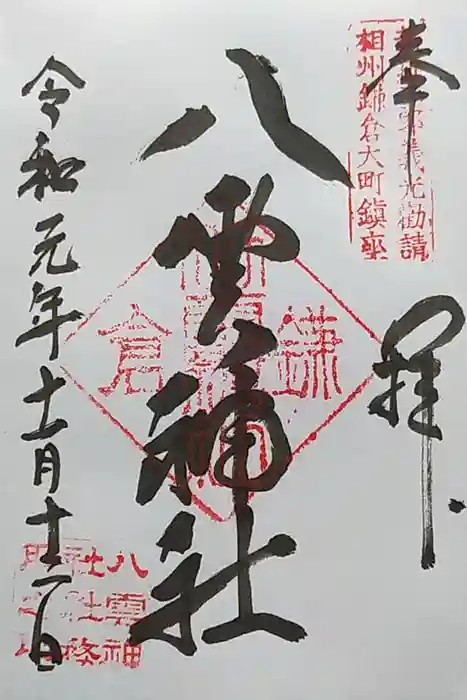 奉拝
義光勧請
相州鎌倉大町鎮座
八雲神社
鎌倉
令和元年十一月十二日
八雲神
社社務
所之印